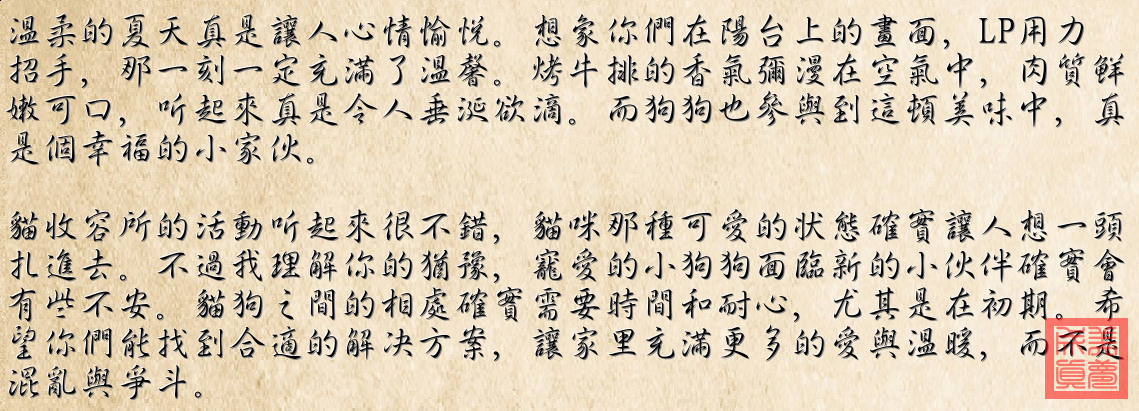 溫柔的夏天真是讓人心情愉悅。想象你們在陽台上的畫面，LP用力
招手，那一刻一定充滿了溫馨。烤牛排的香氣彌漫在空氣中，肉質鮮
嫩可口，听起來真是令人垂涎欲滴。而狗狗也參與到這頓美味中，真
是個幸福的小家伙。
貓收容所的活動听起來很不錯，貓咪那種可愛的狀態確實讓人想一頭
扎進去。不過我理解你的猶豫，寵愛的小狗狗面臨新的小伙伴確實會
有些不安。貓狗之間的相處確實需要時間和耐心，尤其是在初期。希
望你們能找到合適的解決方案，讓家里充滿更多的愛與溫暖，而不是
混亂與爭斗。